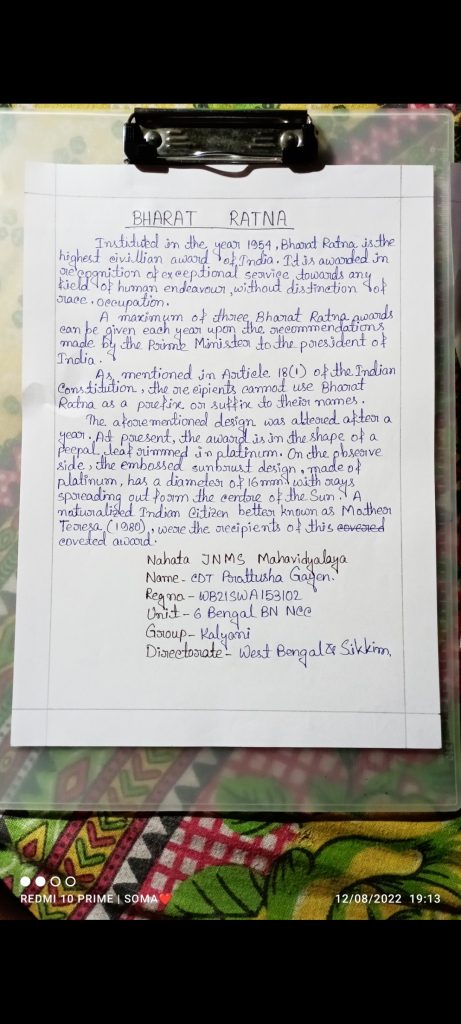 BHARAT RATNA
Instituted in the year 1954, Bharat Ratna is the
highest civillian award of India. It is awarded in
recognition of exceptional service towards any
field of human endeavour, without distinction of
race, occupation.
A maximum of three Bharat Ratna awards
can be given each year upon the recommendations
made by the Prime Minister to the president of
India.
As mentioned in Article 18(1) of the Indian
Constitution, the recipients cannot use Bharat
Ratna as a prefix or suffix to their names.
The aforementioned design was altered after a
year. At present, the award is in the shape of a
peepal leaf rimmed in platinum. On the obscerve
side, the embossed sunbrust design, made of
platinum, has a diameter of 16mm with rays
spreading out form the centre of the Sun. A
naturalized Indian Citizen better known as Mother
Teresa (1980), were the recipients of this covered
coveted award.
Nahata JNMS Mahavidyalaya
Name - CDT Prattusha Gayen.
Reg no - WB21SWA153102
Unit - 6 Bengal BN NCC
Group - Kalyani
Directorate - West Bengal & Sikkim.
REDMI 10 PRIME | SOMA❤️ 12/08/2022 19:13